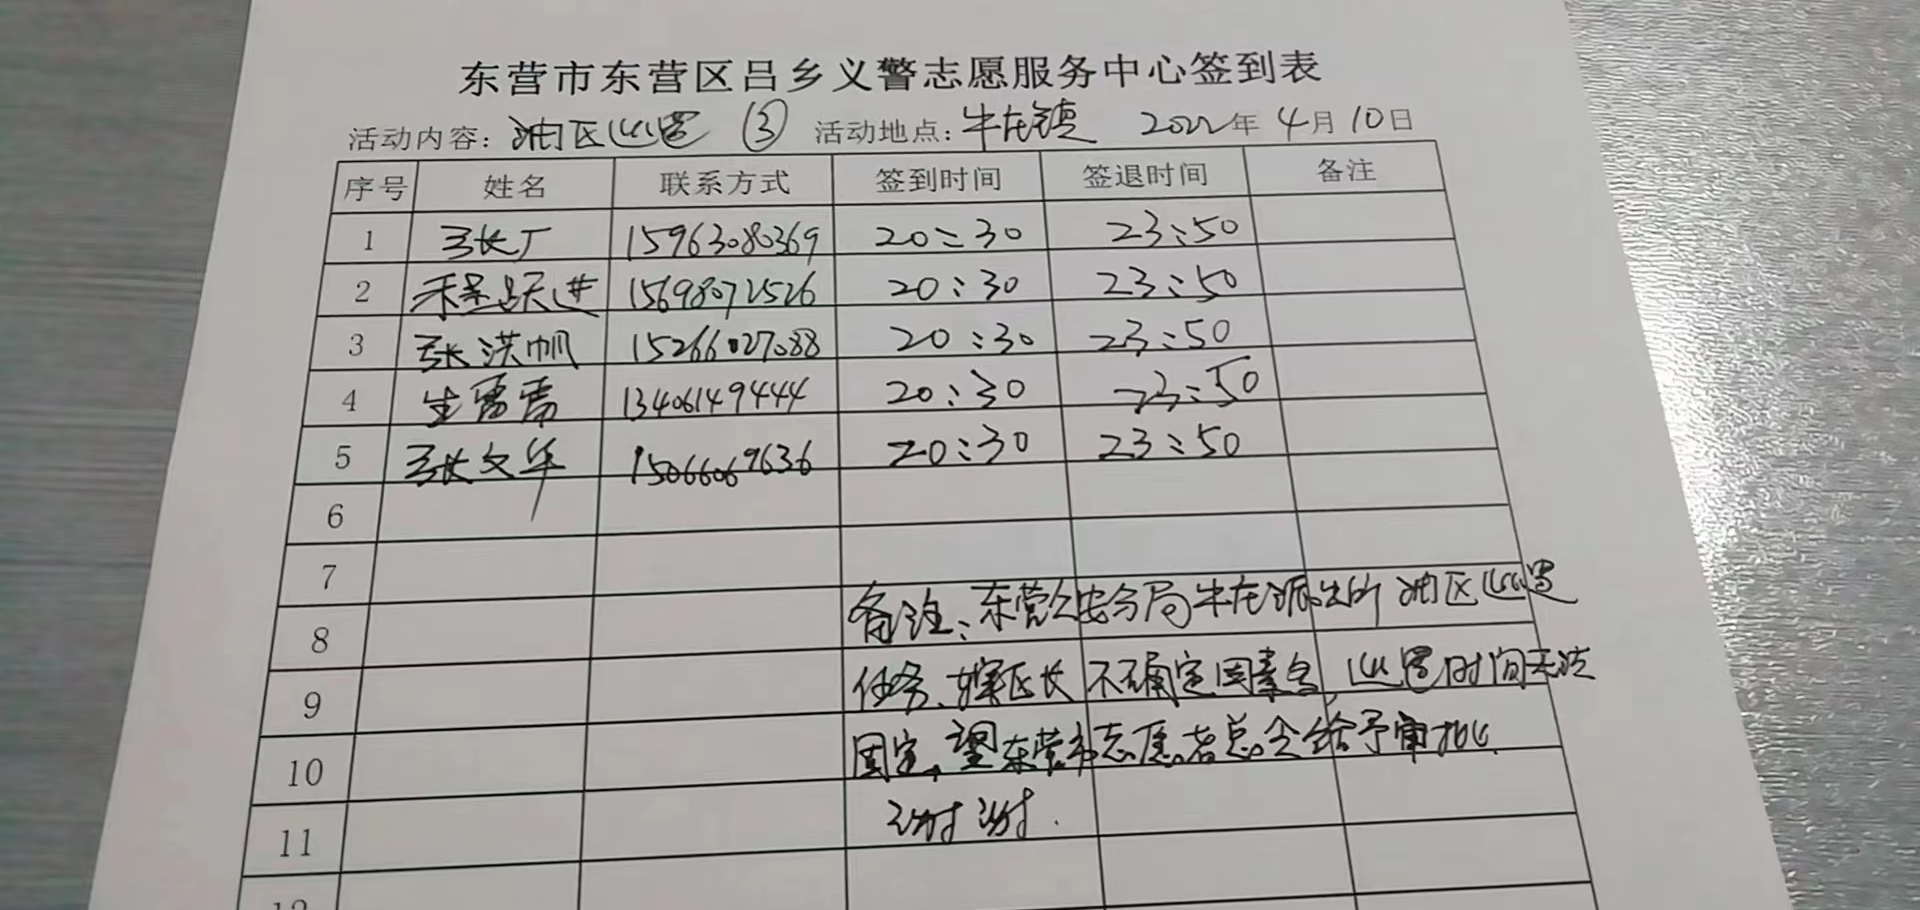 东营市东营区吕乡义警志愿服务中心签到表
活动内容: 油区巡逻 ③ 活动地点: 牛庄镇 2022年 4月10日
序号 姓名 联系方式 签到时间 签退时间 备注
1 张广 15963080369 20:30 23:50
2 跃进 15698072526 20:30 23:50
3 张洪帅 15266027088 20:30 23:50
4 生雷雷 13406149444 20:30 23:50
5 张文华 15066069636 20:30 23:50
6
7
8 备注: 东营公安分局牛庄派出所 油区巡逻
9 任务、辖区长 不确定因素多, 巡逻时间无法
10 固定, 望东营市志愿者总会给予审批.
11 谢谢.
12